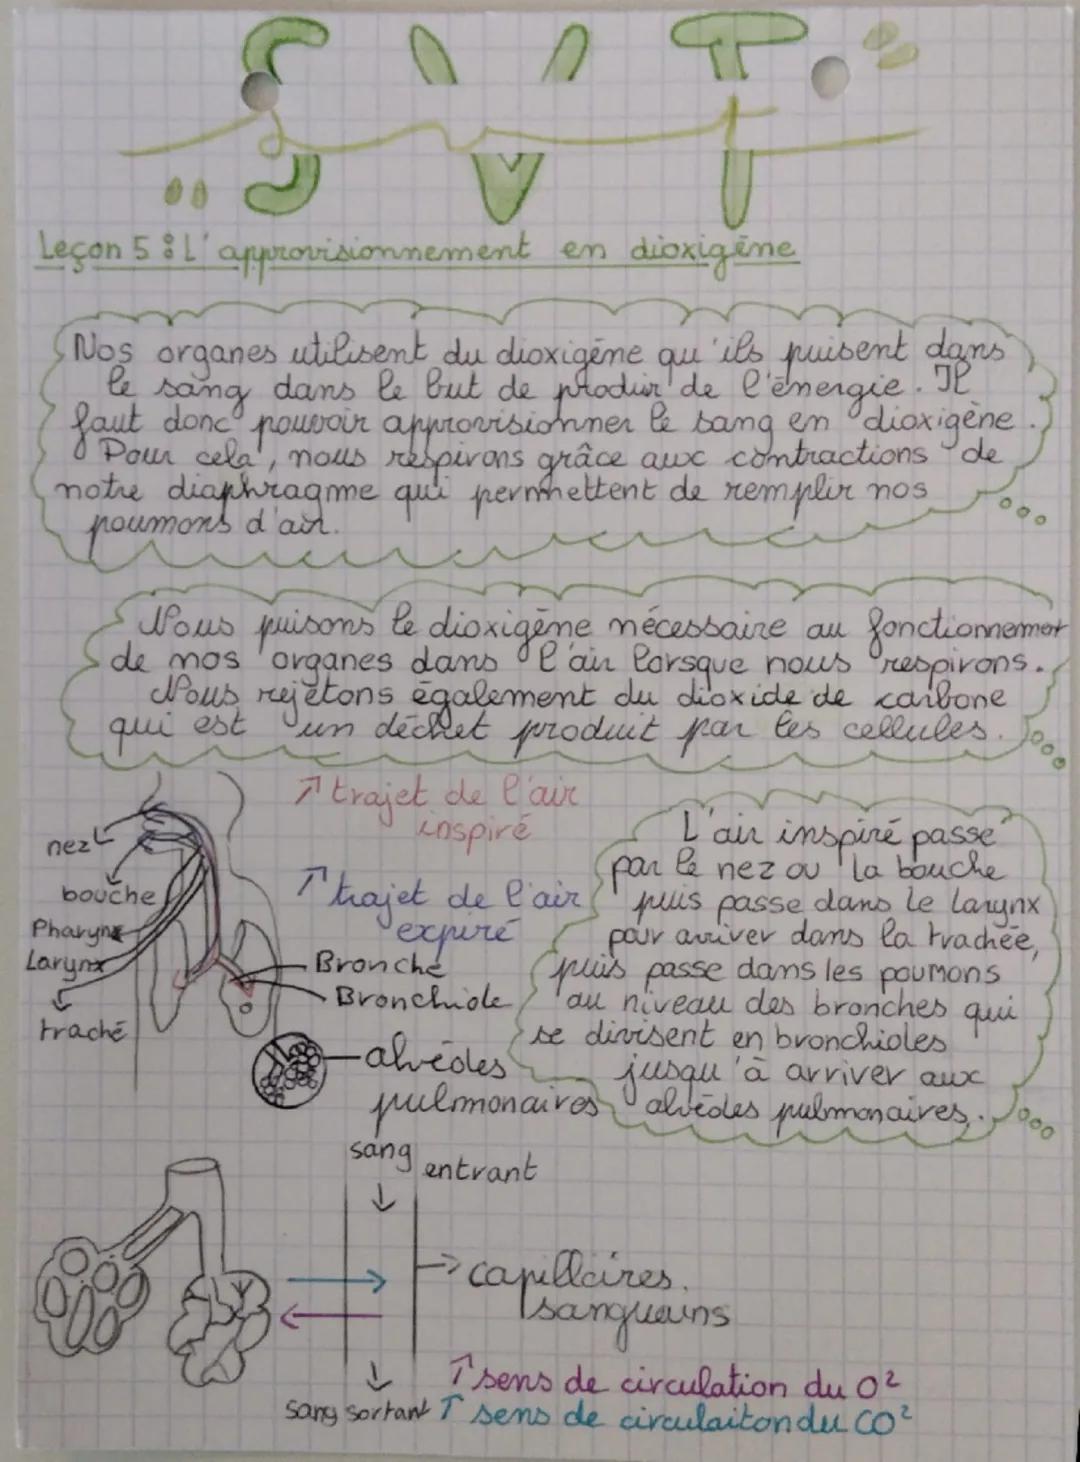 SVT
Leçon 5 : L'approvisionnement en dioxigène
Nos organes utilisent du dioxigène qu'ils puisent dans
le sang dans le but de produir de l'énergie. Il
faut donc pouvoir approvisionner le sang en dioxigène.
Pour cela, nous respirons grâce aux contractions de
notre diaphragme qui permhettent de remplir nos
poumons d'air.
Nous puisons le dioxigène nécessaire au fonctionnement
de nos organes dans l'air lorsque nous respirons.
Nous rejetons également du dioxide de carbone
qui est un déchet produit par les cellules.
↗ trajet de l'air
inspiré
nez
bouche
Pharynx
Larynx
traché
↗ trajet de l'air
expiré
Bronche
Bronchiole
alvéoles
pulmonaires
L'air inspiré passe
par le nez ou la bouche
puis passe dans le larynx
pour arriver dans la trachée,
puis passe dans les poumons
au niveau des bronches qui
se divisent en bronchioles
jusqu'à arriver aux
alvéoles pulmonaires.
sang entrant
capillaires
sanguins
↑ sens de circulation du O²
sang sortant ↑ sens de circulaiton du CO²